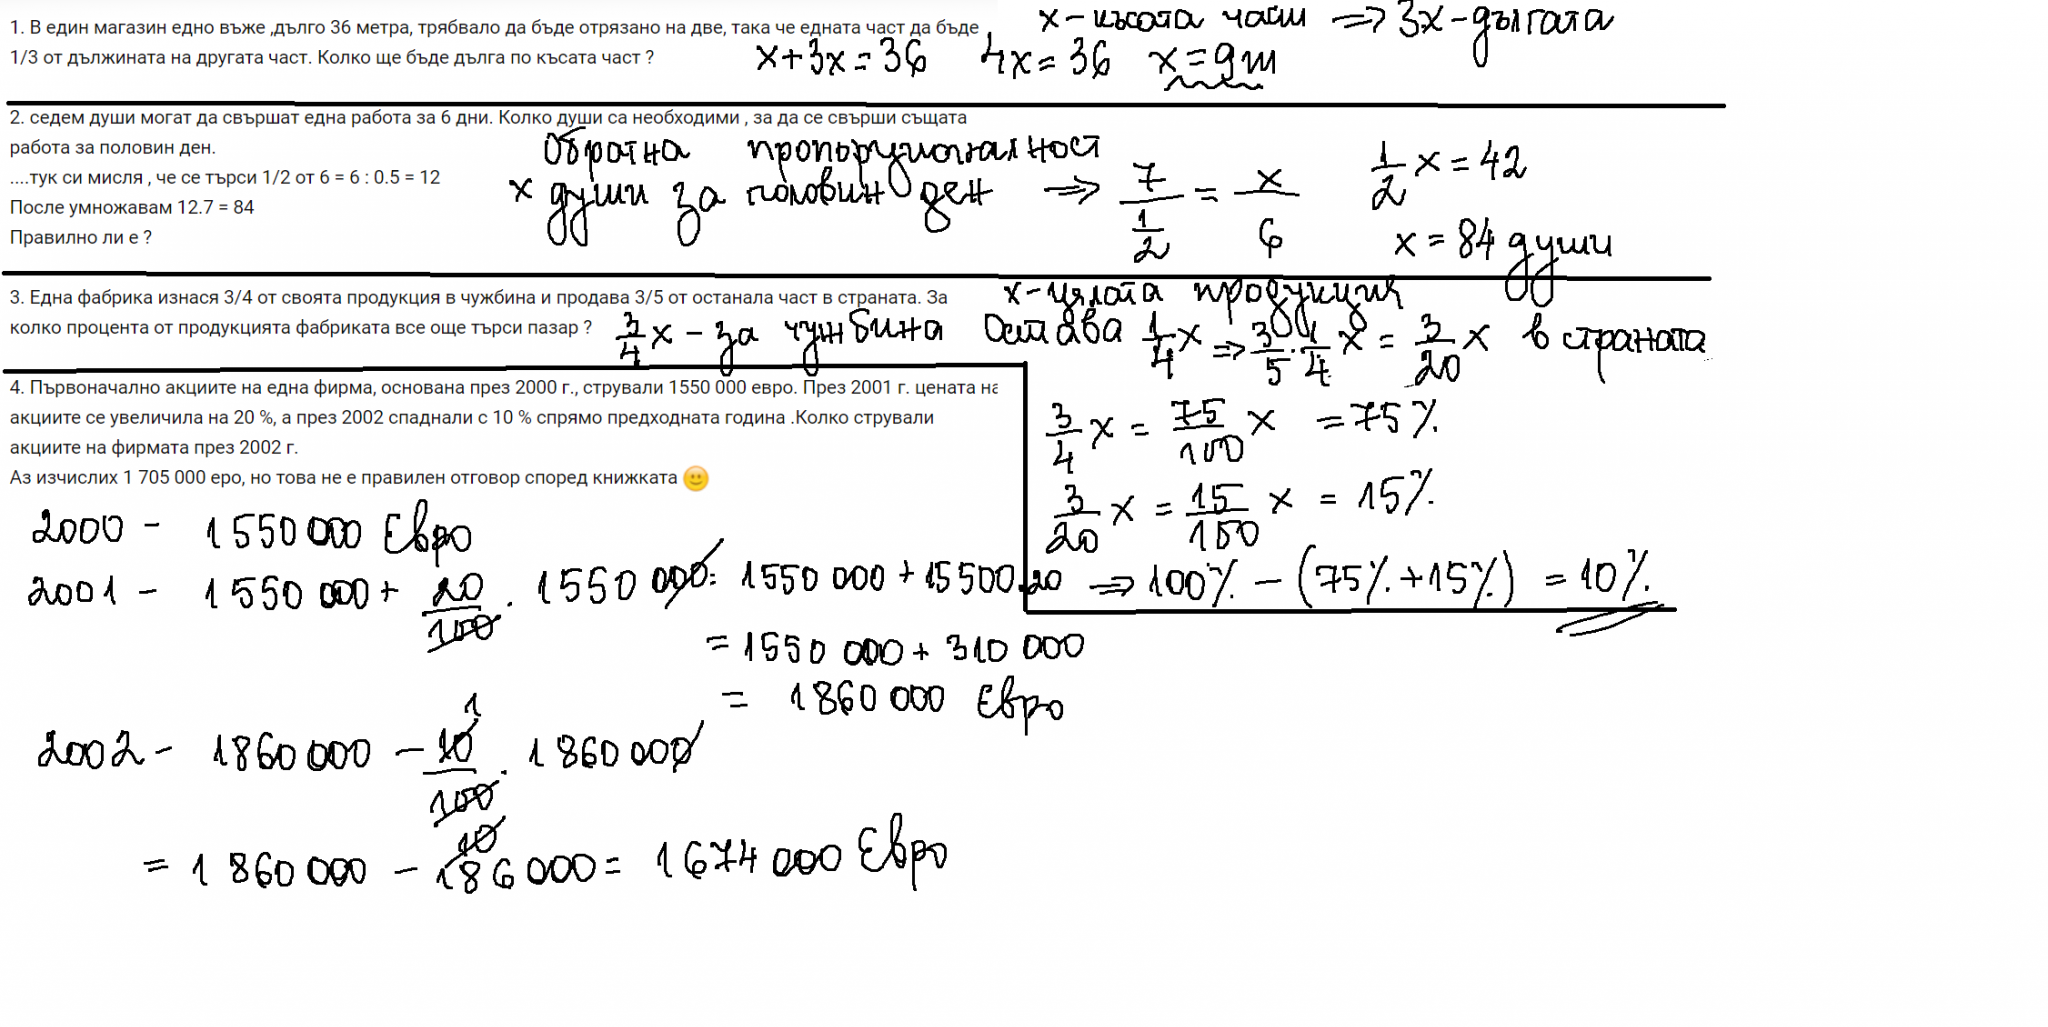 1. В един магазин едно въже ,дълго 36 метра, трябвало да бъде отрязано на две, така че едната част да бъде
1/3 от дължината на другата част. Колко ще бъде дълга по късата част ?
x - късата част => 3x - дългата
x + 3x = 36 4x = 36 x = 9m
2. седем души могат да свършат една работа за 6 дни. Колко души са необходими , за да се свърши същата
работа за половин ден.
....тук си мисля , че се търси 1/2 от 6 = 6 : 0.5 = 12
После умножавам 12.7 = 84
Правилно ли е ?
Обратна пропорционалност
x души за половин ден => 7/(1/2) = x/6
1/2 x = 42
x = 84 души
3. Една фабрика изнася 3/4 от своята продукция в чужбина и продава 3/5 от останала част в страната. За
колко процента от продукцията фабриката все още търси пазар ?
x - цялата продукция
3/4 x - за чужбина Остава 1/4 x => 3/5 . 1/4 x = 3/20 x в страната
3/4 x = 75/100 x = 75%
3/20 x = 15/100 x = 15%
=> 100% - (75% + 15%) = 10%
4. Първоначално акциите на една фирма, основана през 2000 г., стрували 1550 000 евро. През 2001 г. цената на
акциите се увеличила на 20 %, а през 2002 спаднали с 10 % спрямо предходната година .Колко стрували
акциите на фирмата през 2002 г.
Аз изчислих 1 705 000 еро, но това не е правилен отговор според книжката 🙂
2000 - 1 550 000 Евро
2001 - 1 550 000 + 20/100 . 1 550 000 = 1550 000 + 15 500.20
= 1550 000 + 310 000
= 1860 000 Евро
2002 - 1860 000 - 10/100 . 1 860 000
1
10
= 1 860 000 - 186 000 = 1 674 000 Евро